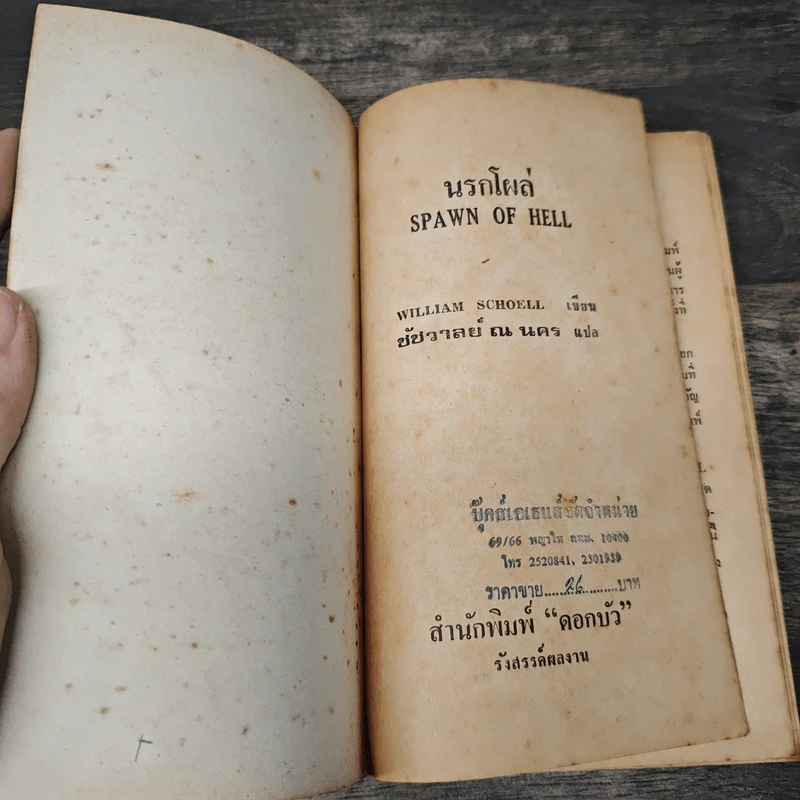 นรกโผล่
SPAWN OF HELL
WILLIAM SCHOELL เขียน
ชัชวาลย์ ณ นคร แปล
บุ๊คส์เอเธนส์จัดจำหน่าย
69/66 พญาไท กทม. 10400
โทร 2520841, 2301939
ราคาขาย....26.......บาท
สำนักพิมพ์ “ดอกบัว”
รังสรรค์ผลงาน